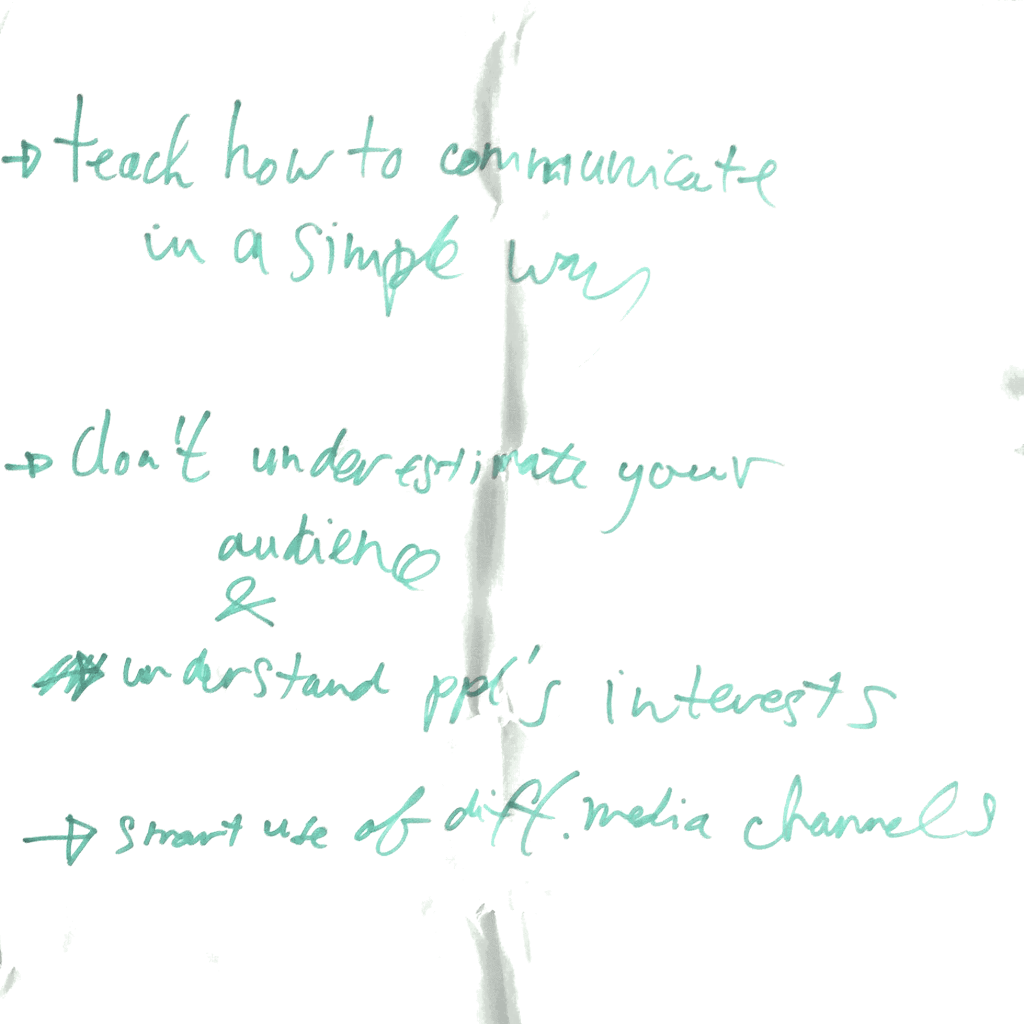 → teach how to communicate
in a simple way
→ don't underestimate your
audience
&
understand ppl's interests
→ smart use of diff. media channels